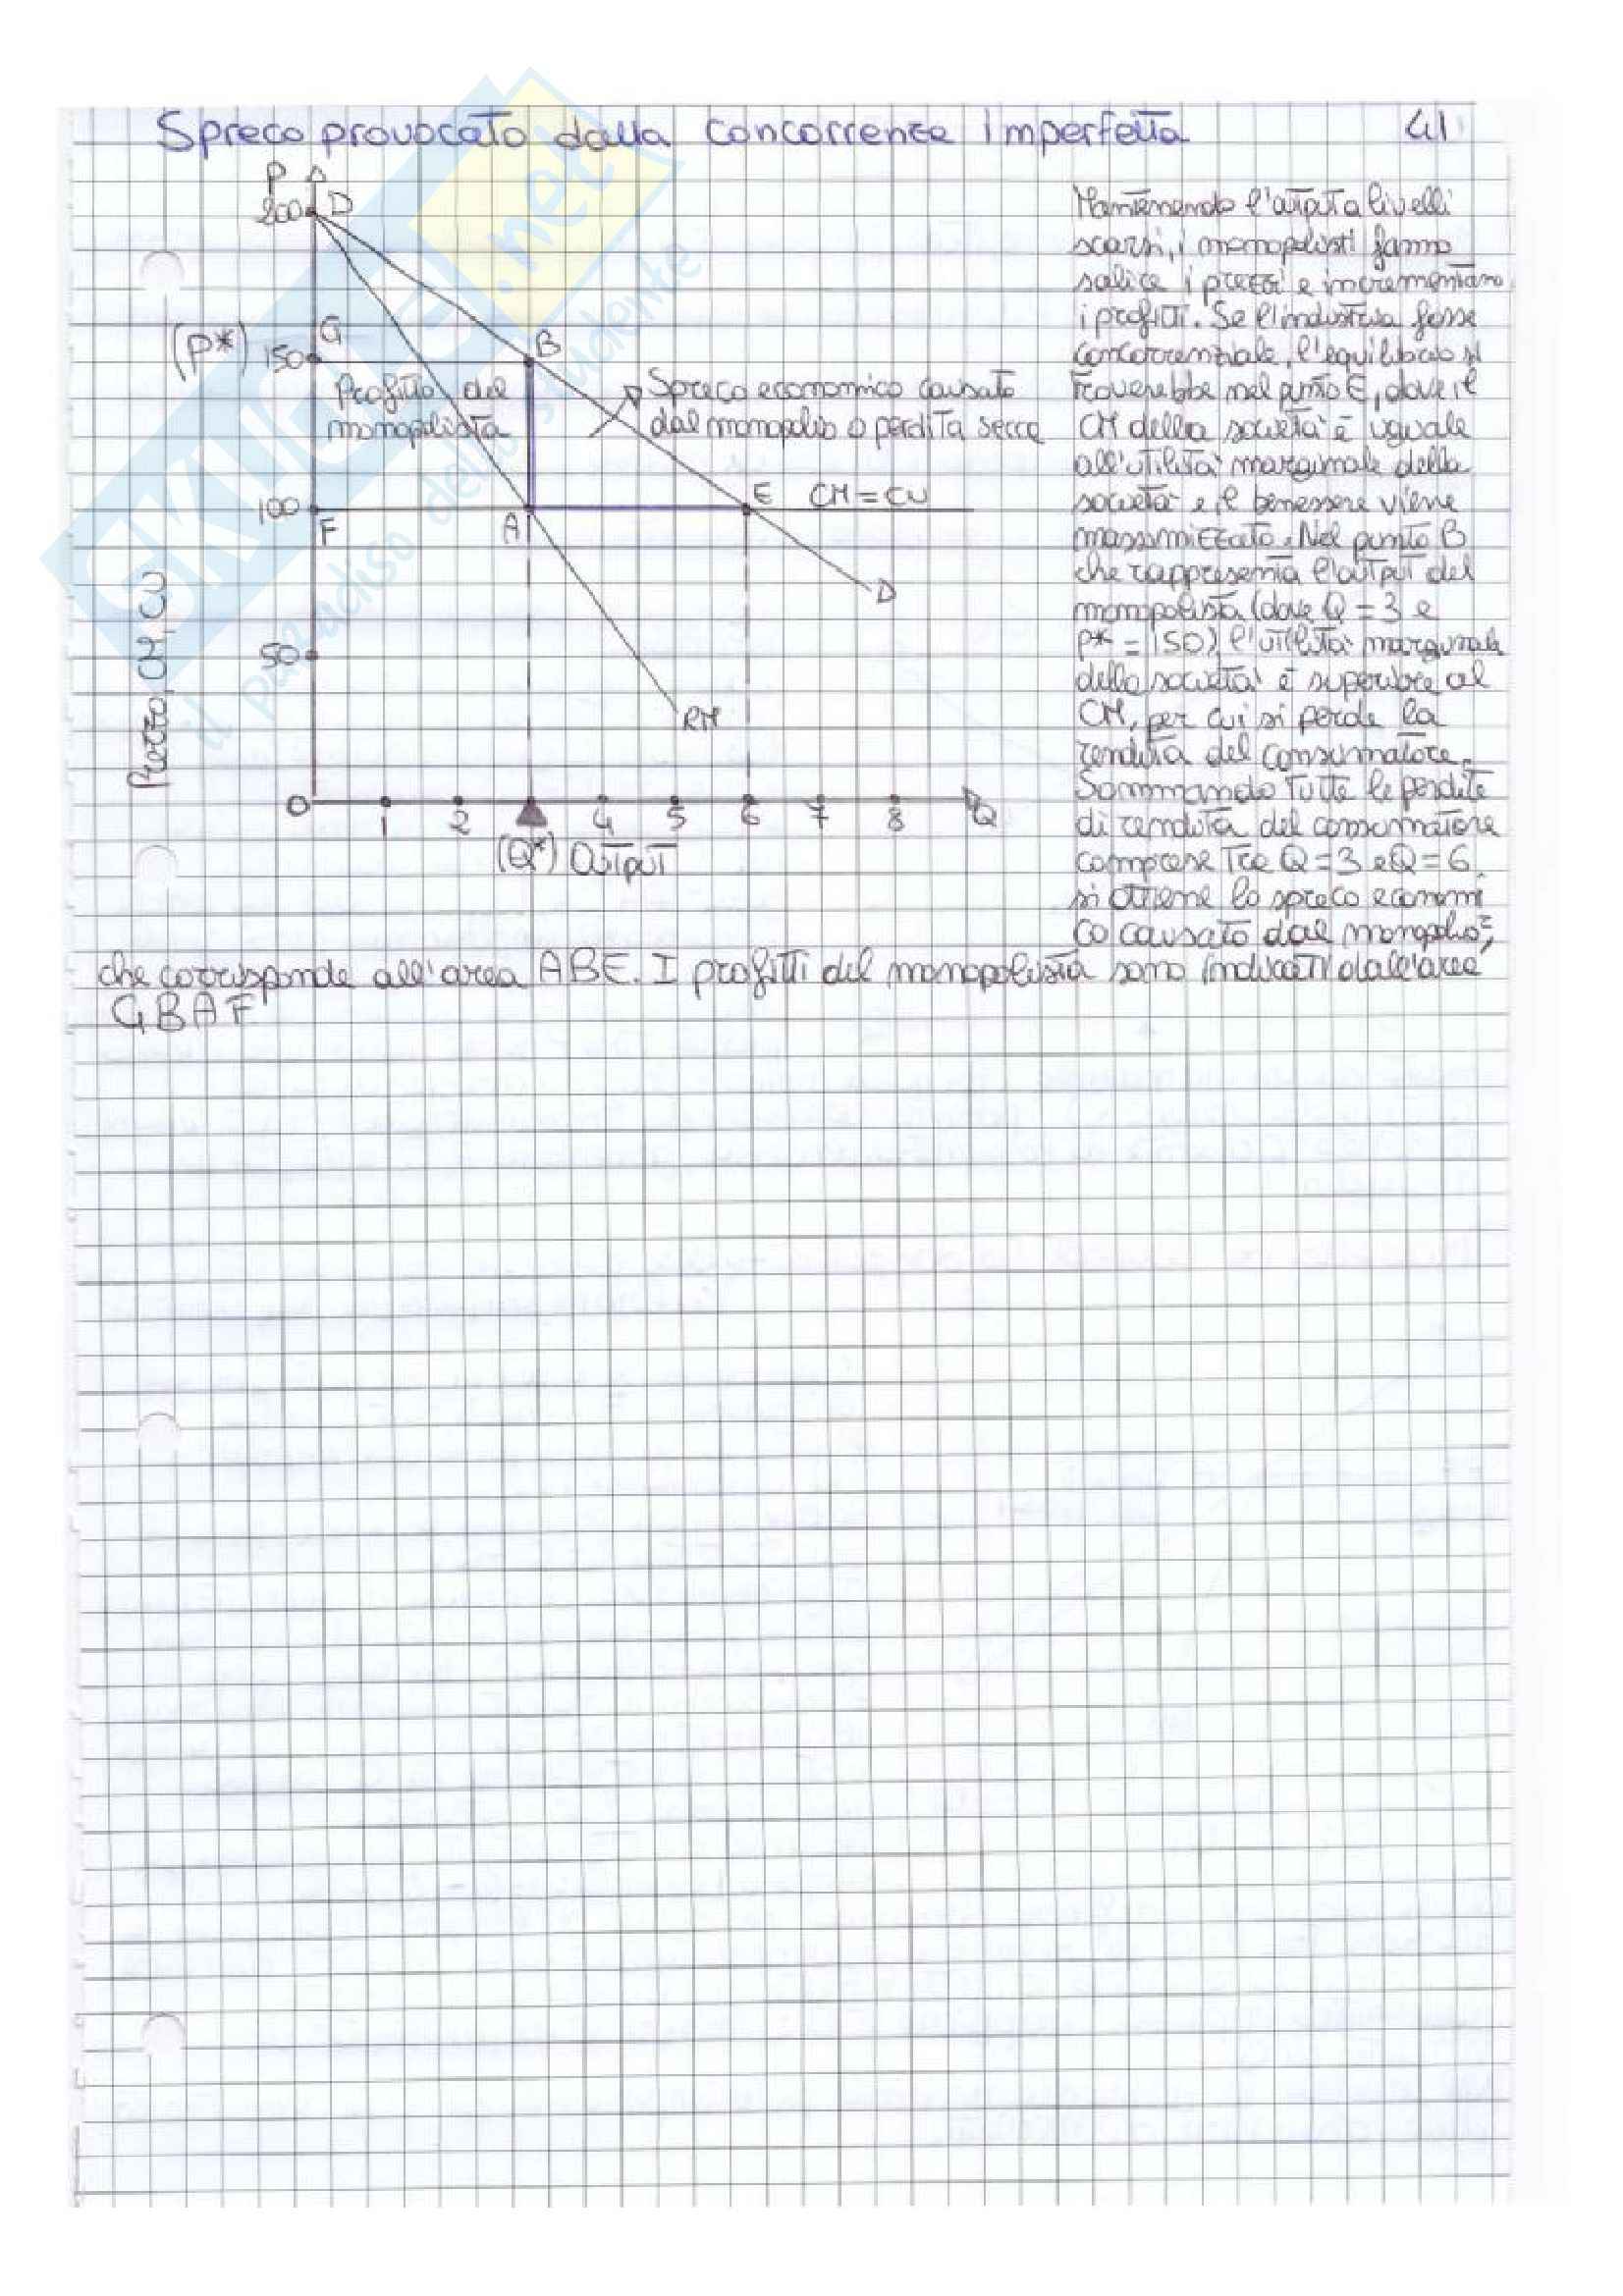 Spreco provocato dalla concorrenza imperfetta 41
P
200 D
G
(P*) 150 B
Profitto del
monopolista
Spreco economico causato
dal monopolio o perdita secca
100 F A E CM = CU
D
50
RM
Prezzo, CM, CU
0 1 2 4 5 6 7 8 Q
(Q*) Output
Mantenendo l'output a livelli
scarsi, i monopolisti fanno
salire i prezzi e incrementano
i profitti. Se l'industria fosse
concorrenziale, l'equilibrio si
troverebbe nel punto E, dove il
CM della società è uguale
all'utilità marginale della
società e il benessere viene
massimizzato. Nel punto B
che rappresenta l'output del
monopolista (dove Q = 3 e
P* = 150) l'utilità marginale
della società è superiore al
CM, per cui si perde la
rendita del consumatore.
Sommando tutte le perdite
di rendita del consumatore
comprese tra Q = 3 e Q = 6
si ottiene lo spreco economi
co causato dal monopolio,
che corrisponde all'area ABE. I profitti del monopolista sono indicati dall'area
GBAF
SKUOLA.net
il paradiso dello studente